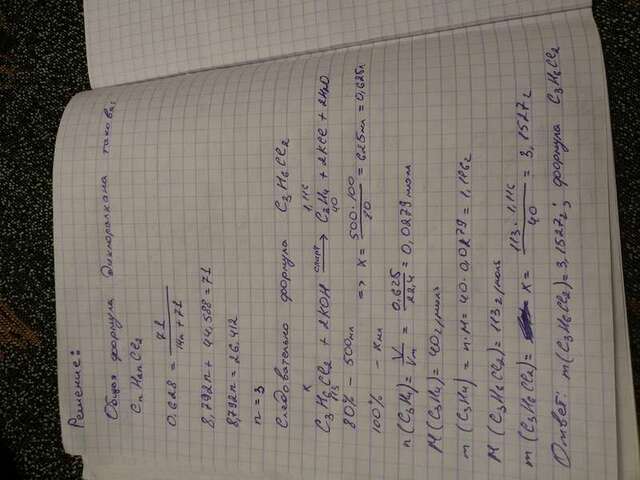 Решение:
Общая формула дихлоралкана такова:
CnH2nCl2
0,628 = 71 / 14n + 71
8,792n + 44,588 = 71
8,792n = 26.412
n = 3
Следовательно формула C3H6Cl2
x 1,116
C3H6Cl2 + 2KOH спирт → C3H4 + 2KCl + 2H2O
113 40
80% – 500мл
100% – xмл => x = 500·100 / 80 = 625мл = 0,625л
n(C3H4) = V / Vm = 0.625 / 22,4 = 0,0279 моль
M(C3H4) = 40 г/моль
m(C3H4) = n·M = 40·0,0279 = 1,116г
M(C3H6Cl2) = 113 г/моль
m(C3H6Cl2) = x = 113·1,116 / 40 = 3,1527г
Ответ: m(C3H6Cl2) = 3,1527г; формула C3H6Cl2